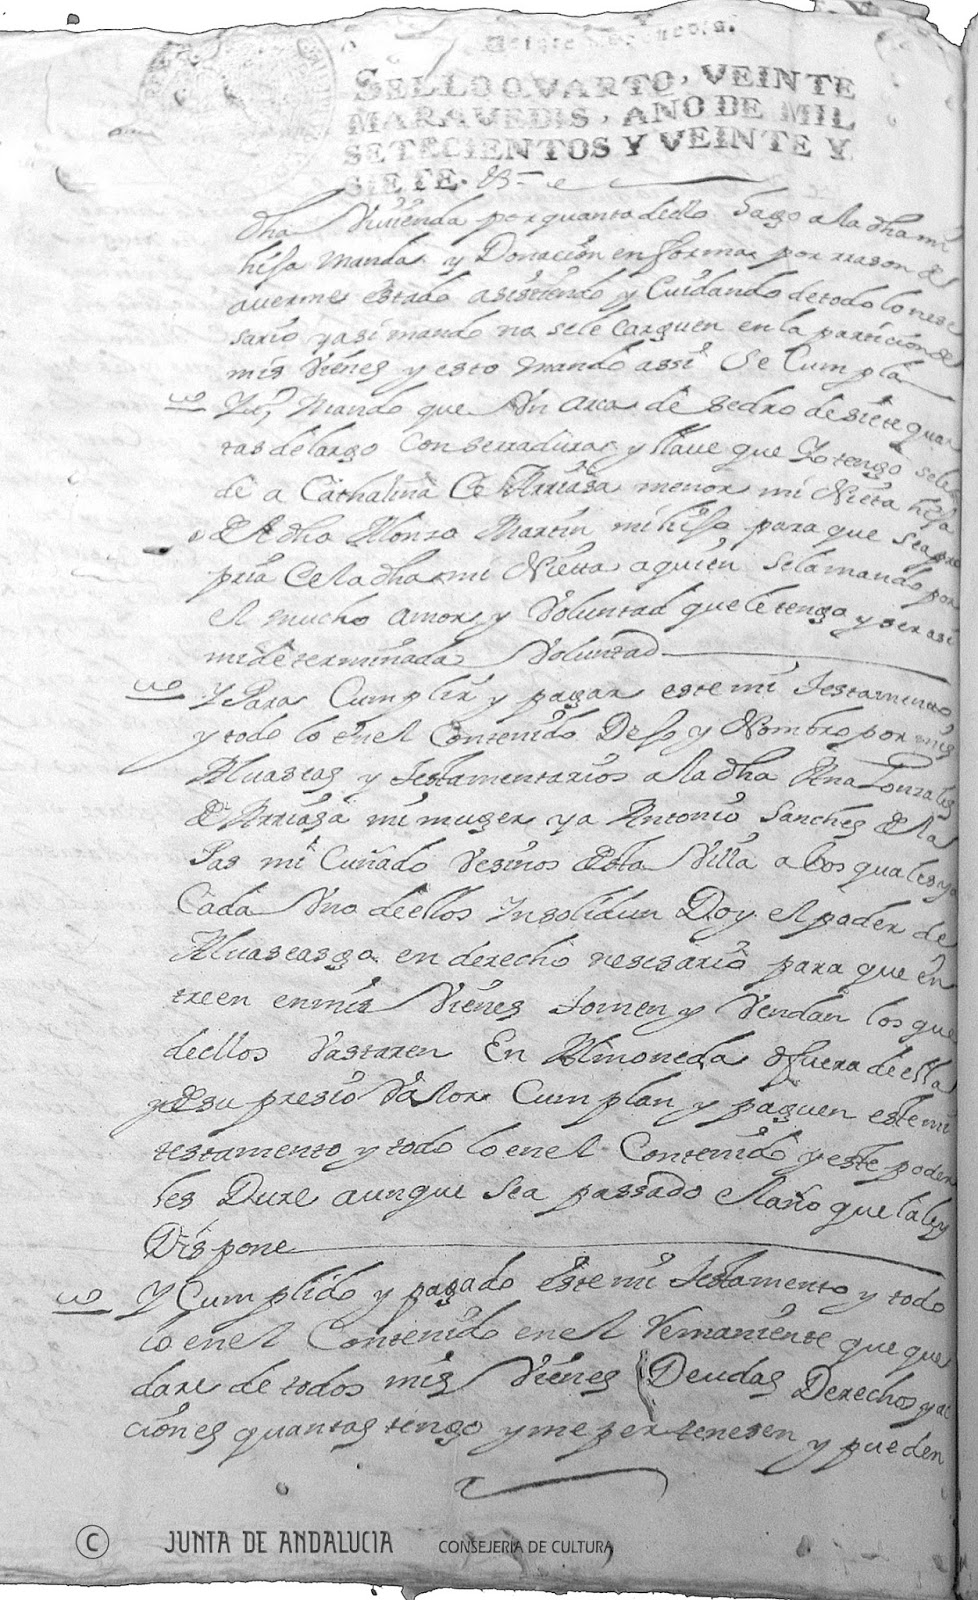 Veinte maravedis.
SELLO QVARTO, VEINTE
MARAVEDIS, AÑO DE MIL
SETECIENTOS Y VEINTE Y
SIETE.
dha Viuienda por quanto dello hago a la dha mi
hija manda y Donacion en forma por rrason de
auerme estado asistiendo y Cuidando de todo lo nese
sario y asi mando no se le Carguen en la particion de
mis Vienes y esto mando assi Se Cumpla
Yt, Mando que Vn arca de sedro de siete quar
tas de largo Con serradura y llaue que Yo tengo se le
de a Cathalina de Arriasa menor mi Nieta hija
del dho Alonso Martin mi hijo para que sea pro
pria de la dha mi Nieta a quien se la mando por
el mucho amor y Voluntad que le tengo y ser asi
mi determinada Voluntad
Y Para Cumplir y pagar este mi Testamento
y todo lo en el Contenido Dejo y Nombro por mis
Aluaseas y Testamentarios a la dha Ana Gonzales
de Arriasa mi muger y a Antonio Sanches de la
mi Cuñado Vesinos desta Villa a los quales y a
Cada Vno dellos Insolidun Doy el poder de
Aluaseasgo en derecho nesesario para que en
treen en mis Vienes tomen y Vendan los que
dellos Vastaren En Almoneda o fuera della
y de su presio Valor Cumplan y paguen este mi
testamento y todo lo en el Contenido y este poder
les Dure aunque sea passado el año que la ley
Dispone
Y Cumplido y pagado este mi Testamento y todo
lo en el Contenido en el Remaniente que que
dare de todos mis Vienes Deudas Derechos y ac
ciones quantas tengo y me pertenesen y pueden
© JUNTA DE ANDALUCIA CONSEJERÍA DE CULTURA